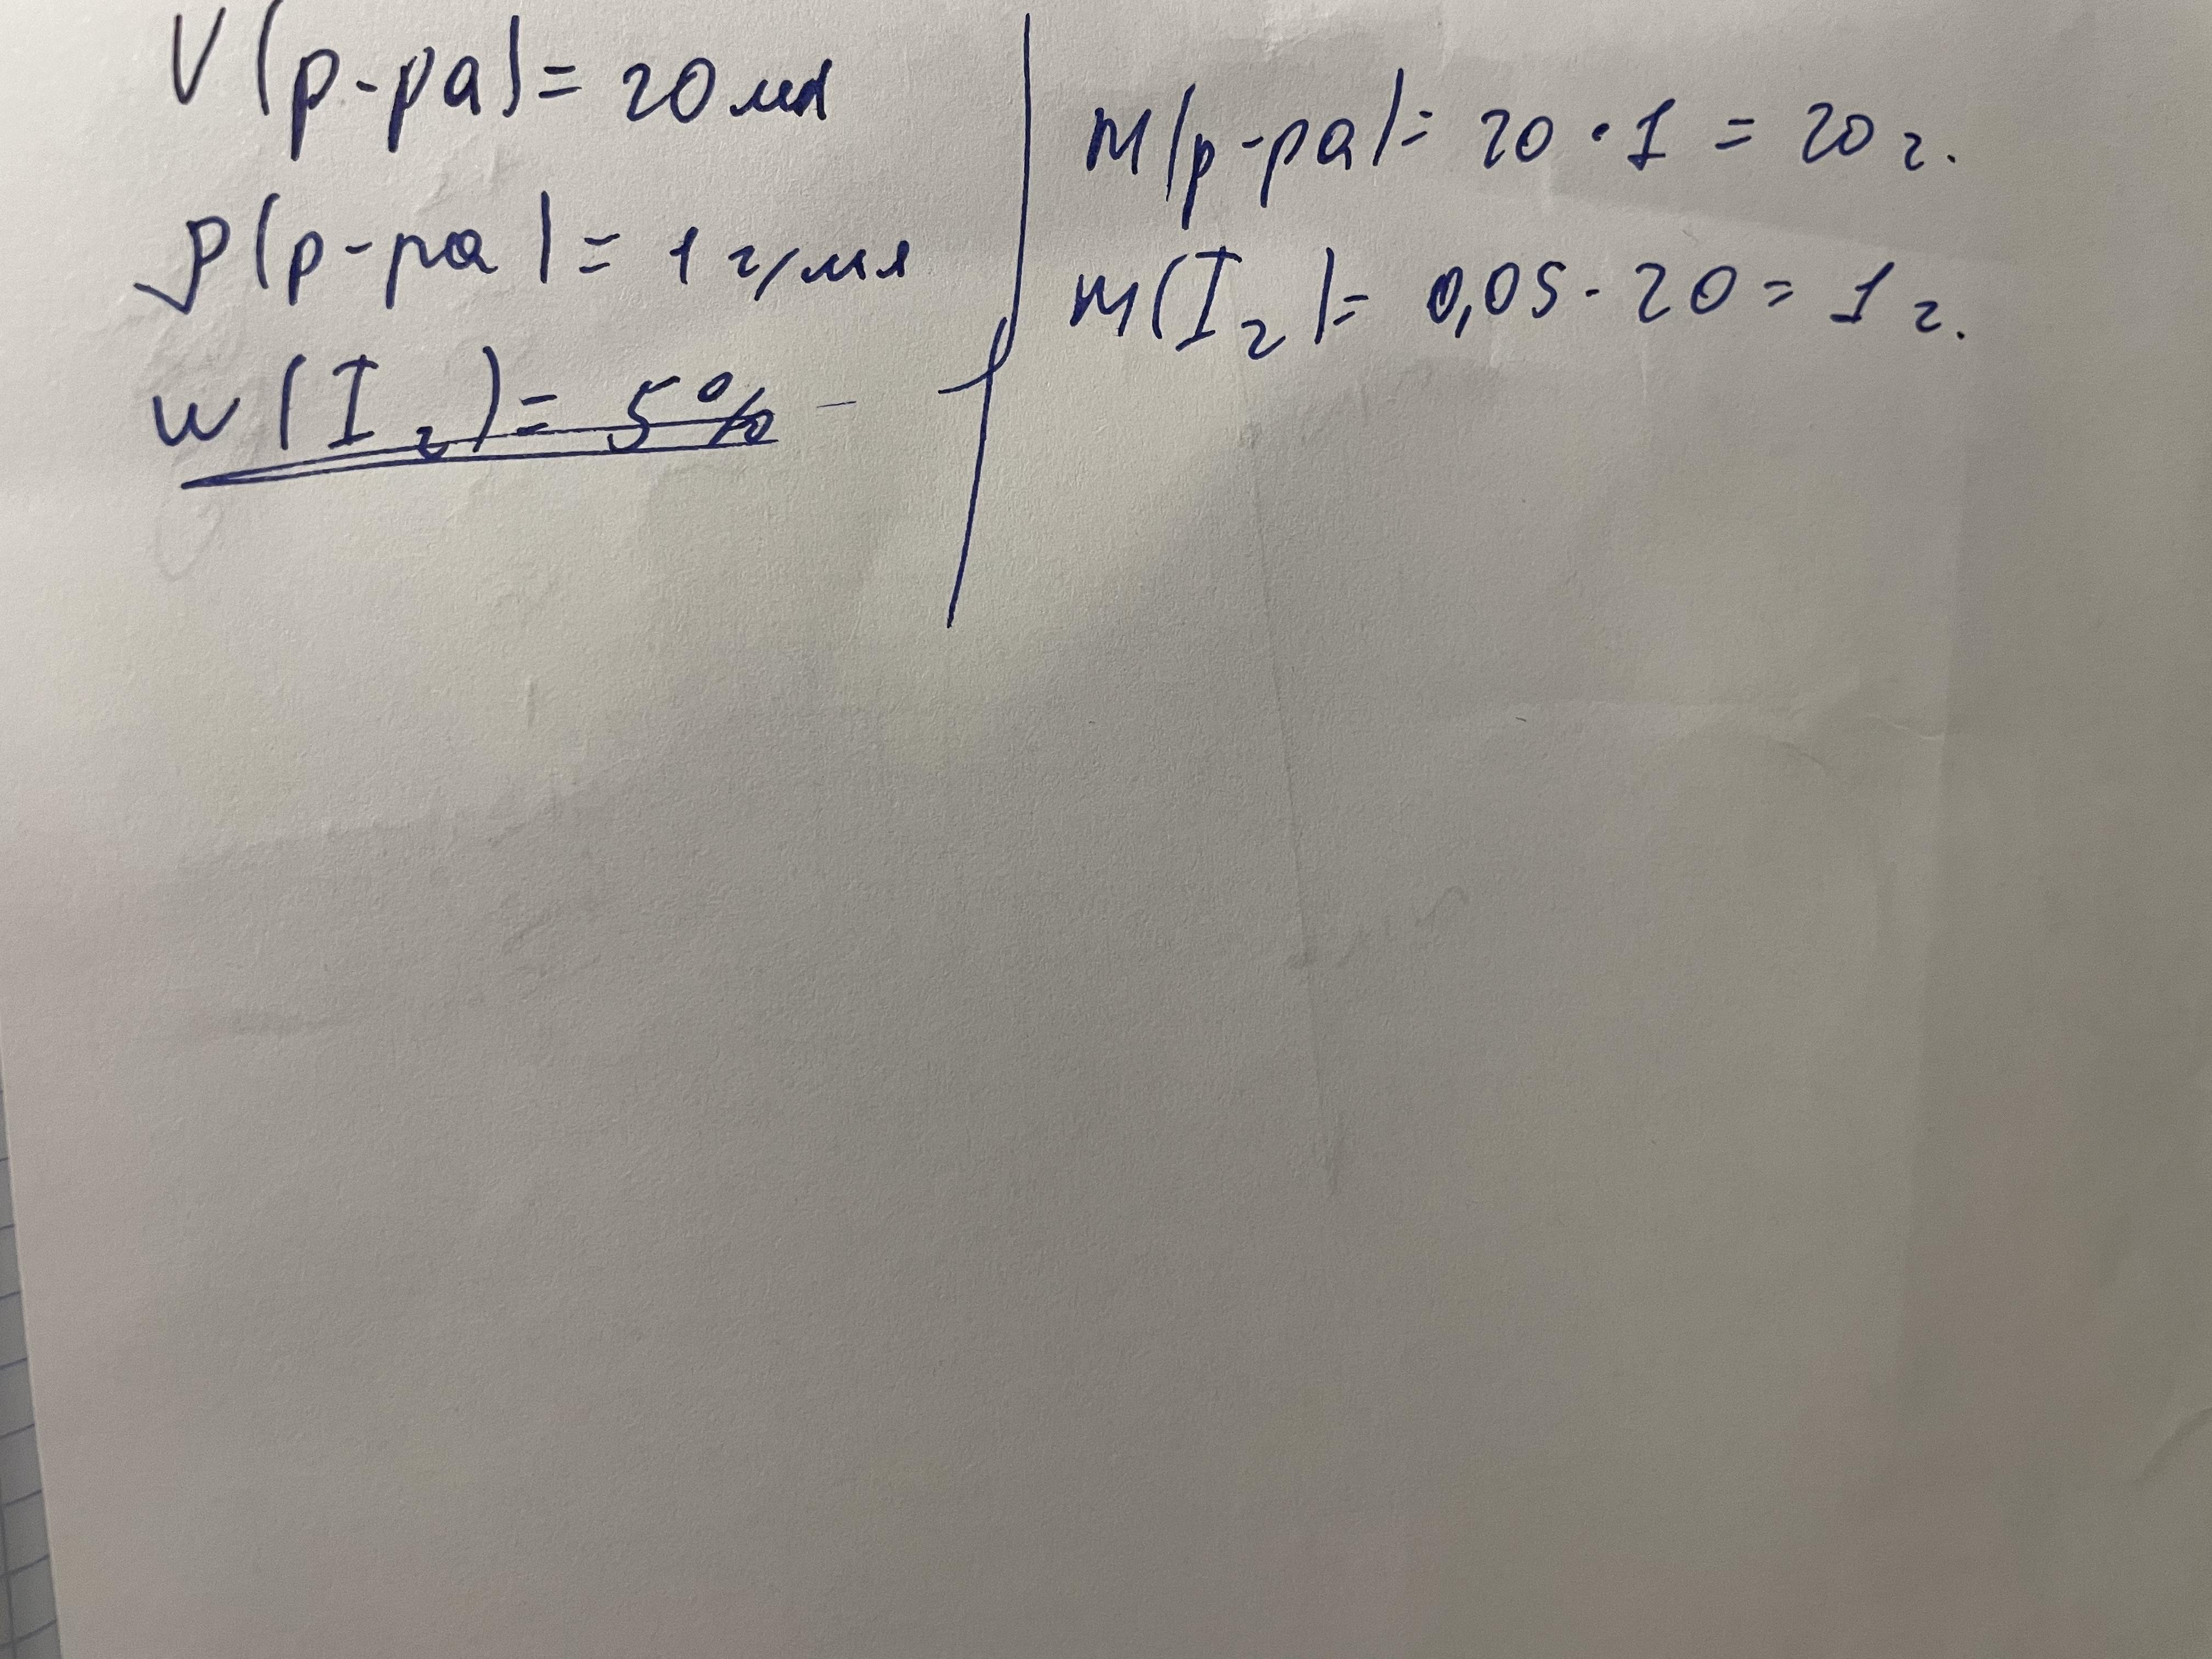 V(р-ра)= 20 мл
ρ(р-ра)= 1 г/мл
w(I₂)= 5%
m(р-ра)= 20 · 1 = 20 г.
m(I₂)= 0,05 · 20 = 1 г.